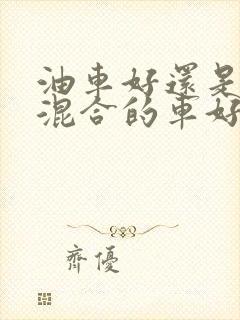 油車好還是
混合的車好
齊優